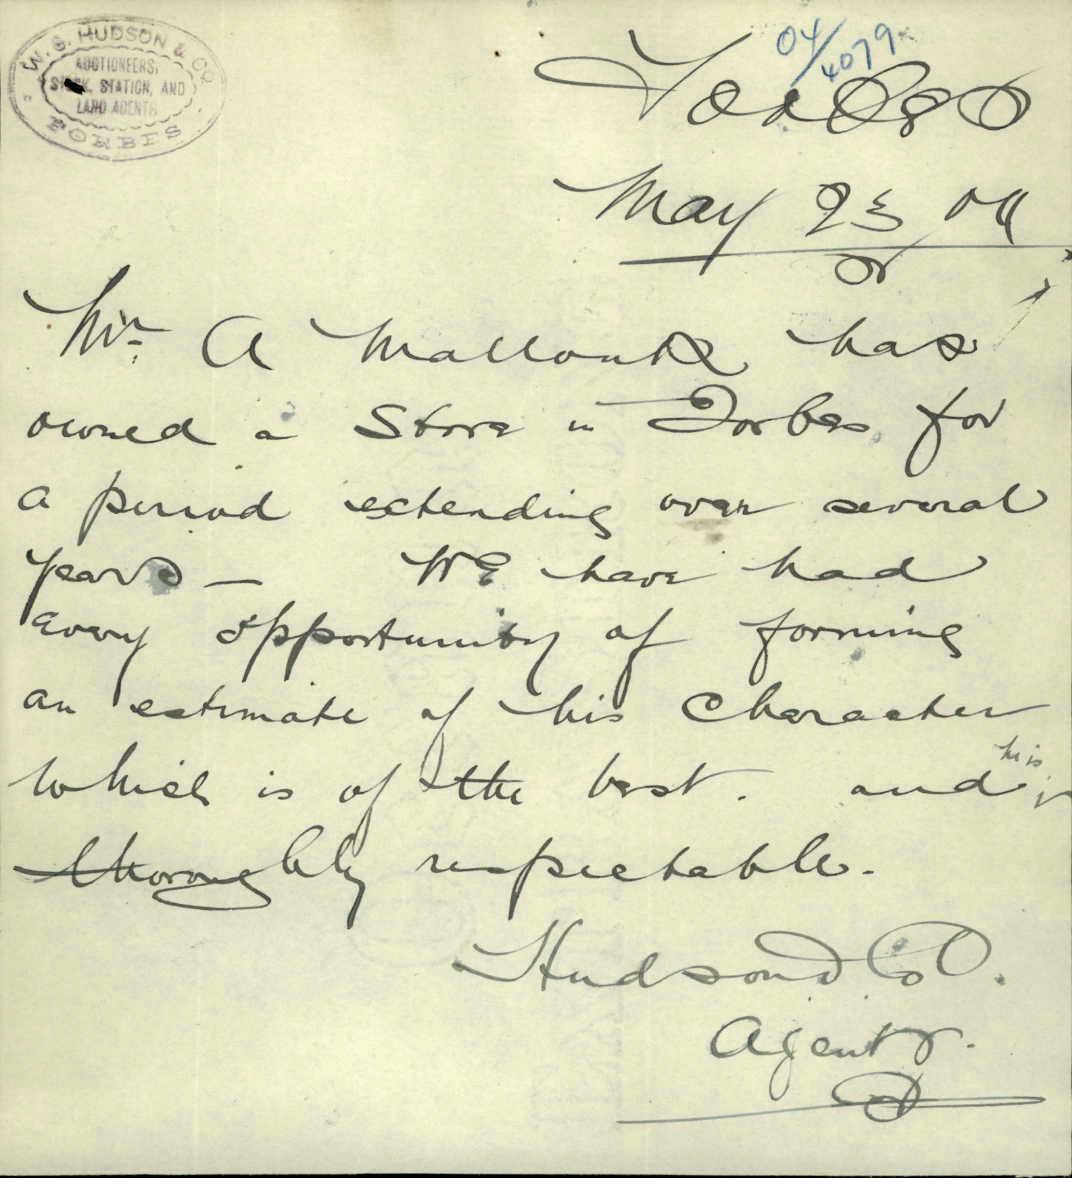 W. G. HUDSON & CO
AUCTIONEERS,
STOCK, STATION, AND
LAND AGENTS
FORBES
04/4079
Forbes
May 23 04
Mr A Mallouk has
owned a Store in Forbes for
a period extending over several
years — We have had
every opportunity of forming
an estimate of his Character
which is of the best. and his
thoroughly respectable.
Hudson & Co.
Agents.